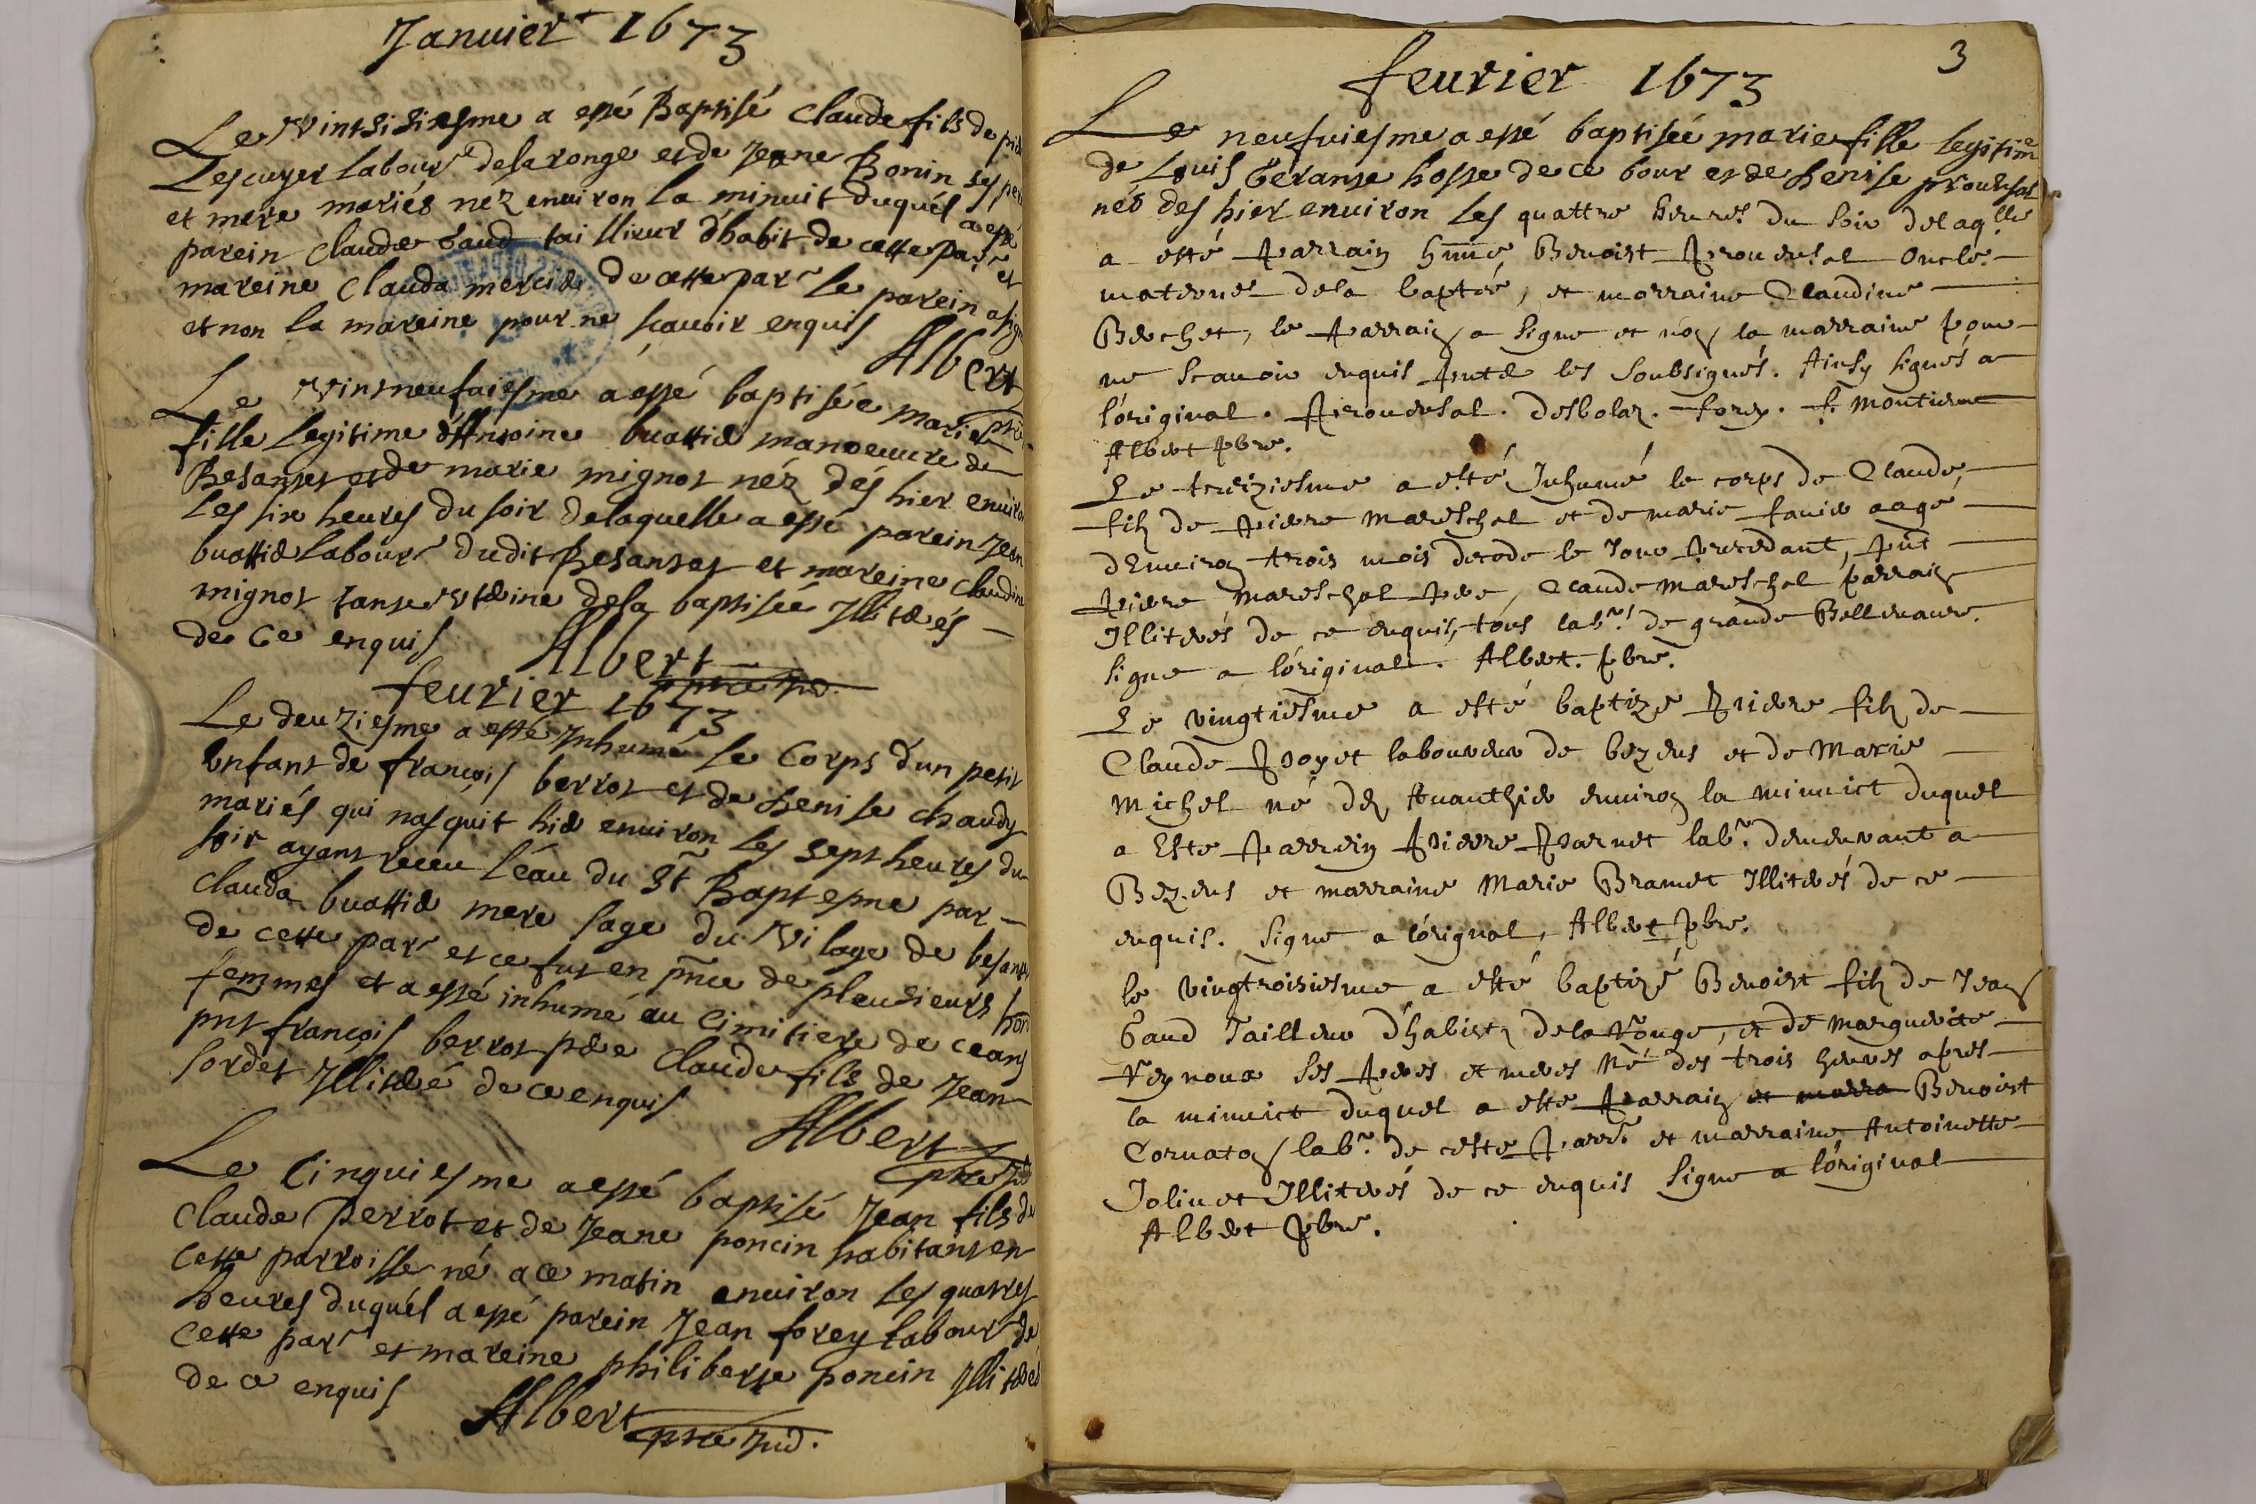 Januier 1673
Le vintsisiesme a esté Baptisé Claude fils de
Lescuyer labour.r de la ronge et de Jeane Bonin ses
et mere mariés néz enuiron la minuit duquel a esté
parein Claude Gaud taillieur d'habit de cette par.e et
mareine Clauda mercier de cette par.e le parein a signé
et non la mareine pour ne sçauoir enquis
Albert
Le vintneufaiesme a esté baptisée marie
fille legitime d'Antoine buattier manoeuure de
Besanset et de marie mignot néz dés hier enuiron
les six heures du soir de laquelle a esté parein Jean
buattier labour.r dudit Besanset et mareine Claudine
mignot tante de la baptisée Jlliterés
de ce enquis
Albert
feurier 1673
Le deuziesme a esté Jnhumé le Corps d'un petit
Enfant de françois berrot et de Benise chaudy
mariés qui nasquit hier enuiron les sept heures du
soir ayant receu l'eau du St Baptesme par
Clauda buattier mere sage du vilage de besanset
de cette par.e et ce fut en pñce de pleusieurs
femmes et a esté inhumé au Cimitiere de ceans
pnt françois berrot pere Claude fils de Jean
sordet Jlliteré de ce enquis
Albert
Le Cinquiesme a esté baptisé Jean fils de
Claude Perrot et de Jeane poncin habitans en
Cette parroisse né a ce matin enuiron les quatres
heures duquel a esté parein Jean forey labour.r de
Cette par.e et mareine philiberte poncin Jlliterés
de ce enquis
Albert
3
feurier 1673
Le neufuiesme a esté baptiseé marie fille legitime
de Louis Geranse hoste de ce bour et de Benise prouensal
néé des hier enuiron les quattre heures du soir de laq.lle
a esté parrain hñne Benoist Prouensal oncle
maternel de la baptée, et marraine Claudine
Berchet, le parrain a signe et nõ la marraine pour
ne scauoir enquis pntz les soubsignés. Ainsy signés a
l'original. Prouensal. desbolaz. forey. f. montierne
Albert pbre.
Le treiziesme a esté Inhumé le corps de Claude,
filz de Pierre mareschal et de marie fauier aagé
denuiron trois mois decede le jour precedant, pnt
Pierre mareschal pere, Claude mareschal parrain
Illiterés de ce enquis, tous lab.rs de grande Belleuaure.
signe a l'original. Albert. pbre.
Le vingtiesme a esté baptize Pierre filz de
Claude Proyet laboureur de bezens et de Marie
Michel né dez auanthier enuiron la minuict duquel
a Este parrein Pierre Parnet lab.r demeurant a
Bezens et marraine Marie Bramet Illiterés de ce
enquis. signe a l'orignal, Albert pbre.
le vingtroisiesme a esté baptizé Benoist filz de Jean
Gaud Tailleur d'habist de la Ronge, et de marguerite
Reynoux ses peres et meres Né des trois heures apres
la minuict duquel a esté parrain et marra Benoist
Cornaton lab.r de ceste parr.e et marraine Antoinette
Joliuet Illiterés de ce enquis signe a l'original
Albert pbre.